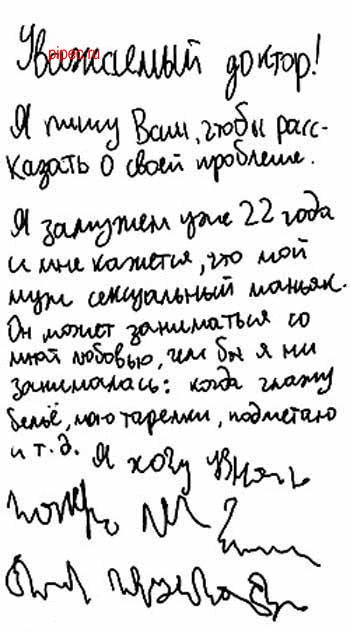 Уважаемый доктор!
pipec.ru
Я пишу Вам, чтобы расс-
казать о своей проблеме.
Я замужем уже 22 года
и мне кажется, что мой
муж сексуальный маньяк.
Он может заниматься со
мной любовью, чем бы я ни
занималась: когда глажу
бельё, мою тарелки, подметаю
и т.д. Я хочу